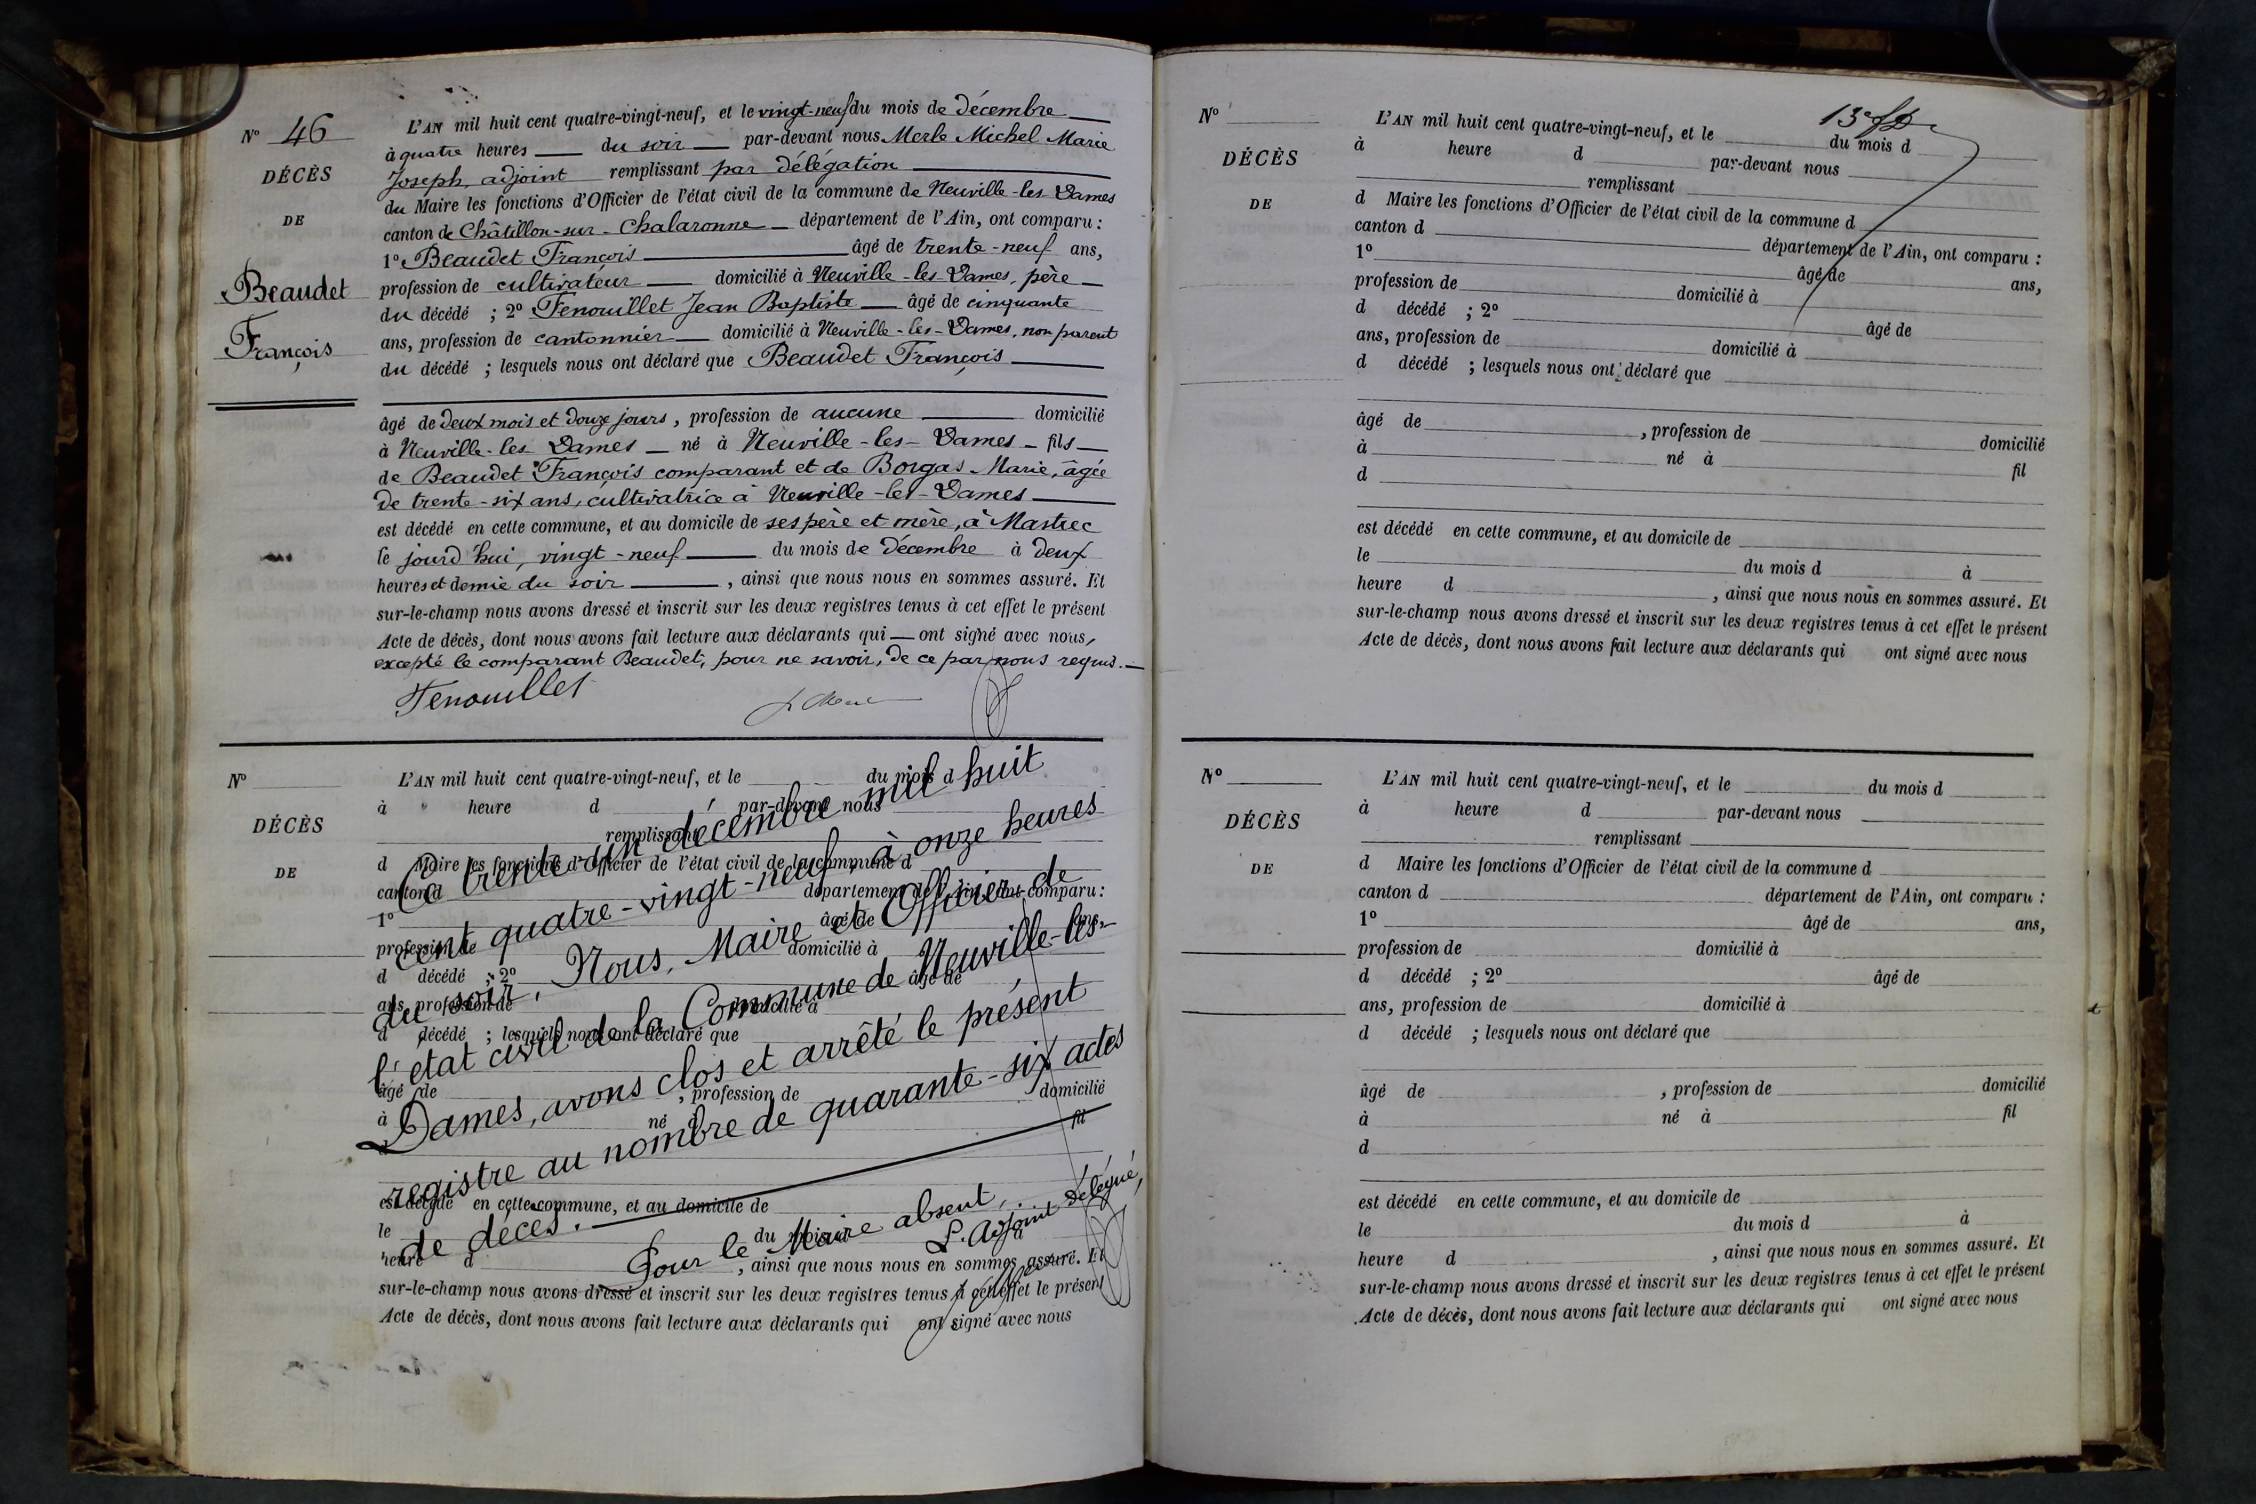 N° 46
DÉCÈS
DE
Beaudet
François
L'AN mil huit cent quatre-vingt-neuf, et le vingt-neuf du mois de décembre
à quatre heures du soir par-devant nous Merle Michel Marie
Joseph, adjoint remplissant par délégation
du Maire les fonctions d'Officier de l'état civil de la commune de Neuville-les-Dames
canton de Châtillon-sur-Chalaronne département de l'Ain, ont comparu :
1° Beaudet François âgé de trente-neuf ans,
profession de cultivateur domicilié à Neuville-les-Dames, père
du décédé ; 2° Fenouillet Jean Baptiste âgé de cinquante
ans, profession de cantonnier domicilié à Neuville-les-Dames, non parent
du décédé ; lesquels nous ont déclaré que Beaudet François
âgé de deux mois et douze jours, profession de aucune domicilié
à Neuville-les-Dames né à Neuville-les-Dames fils
de Beaudet François comparant et de Borgas Marie, âgée
de trente-six ans, cultivatrice à Neuville-les-Dames
est décédé en cette commune, et au domicile de ses père et mère, à Mastrec
le jourd'hui, vingt-neuf du mois de décembre à deux
heures et demie du soir, ainsi que nous nous en sommes assuré. Et
sur-le-champ nous avons dressé et inscrit sur les deux registres tenus à cet effet le présent
Acte de décès, dont nous avons fait lecture aux déclarants qui ont signé avec nous,
excepté le comparant Beaudet, pour ne savoir, de ce par nous requis.
Fenouillet
N°
DÉCÈS
DE
L'AN mil huit cent quatre-vingt-neuf, et le du mois d
à heure d par-devant nous
remplissant
d Maire les fonctions d'Officier de l'état civil de la commune d
canton d département de l'Ain, ont comparu :
1° âgé de ans,
profession de domicilié à
d décédé ; 2° âgé de
ans, profession de domicilié à
d décédé ; lesquels nous ont déclaré que
âgé de , profession de domicilié
à né à fil
d
est décédé en cette commune, et au domicile de
le du mois d à
heure d , ainsi que nous nous en sommes assuré. Et
sur-le-champ nous avons dressé et inscrit sur les deux registres tenus à cet effet le présent
Acte de décès, dont nous avons fait lecture aux déclarants qui ont signé avec nous
Ce trente-un décembre mil huit
cent quatre-vingt-neuf, à onze heures
du soir, Nous, Maire et Officier de
l'état civil de la Commune de Neuville-les-
Dames, avons clos et arrêté le présent
registre au nombre de quarante-six actes
de décès.
Pour le Maire absent,
L'Adjoint délégué,
N°
DÉCÈS
DE
L'AN mil huit cent quatre-vingt-neuf, et le du mois d
à heure d par-devant nous
remplissant
d Maire les fonctions d'Officier de l'état civil de la commune d
canton d département de l'Ain, ont comparu :
1° âgé de ans,
profession de domicilié à
d décédé ; 2° âgé de
ans, profession de domicilié à
d décédé ; lesquels nous ont déclaré que
âgé de , profession de domicilié
à né à fil
d
est décédé en cette commune, et au domicile de
le du mois d à
heure d , ainsi que nous nous en sommes assuré. Et
sur-le-champ nous avons dressé et inscrit sur les deux registres tenus à cet effet le présent
Acte de décès, dont nous avons fait lecture aux déclarants qui ont signé avec nous
N°
DÉCÈS
DE
L'AN mil huit cent quatre-vingt-neuf, et le du mois d
à heure d par-devant nous
remplissant
d Maire les fonctions d'Officier de l'état civil de la commune d
canton d département de l'Ain, ont comparu :
1° âgé de ans,
profession de domicilié à
d décédé ; 2° âgé de
ans, profession de domicilié à
d décédé ; lesquels nous ont déclaré que
âgé de , profession de domicilié
à né à fil
d
est décédé en cette commune, et au domicile de
le du mois d à
heure d , ainsi que nous nous en sommes assuré. Et
sur-le-champ nous avons dressé et inscrit sur les deux registres tenus à cet effet le présent
Acte de décès, dont nous avons fait lecture aux déclarants qui ont signé avec nous